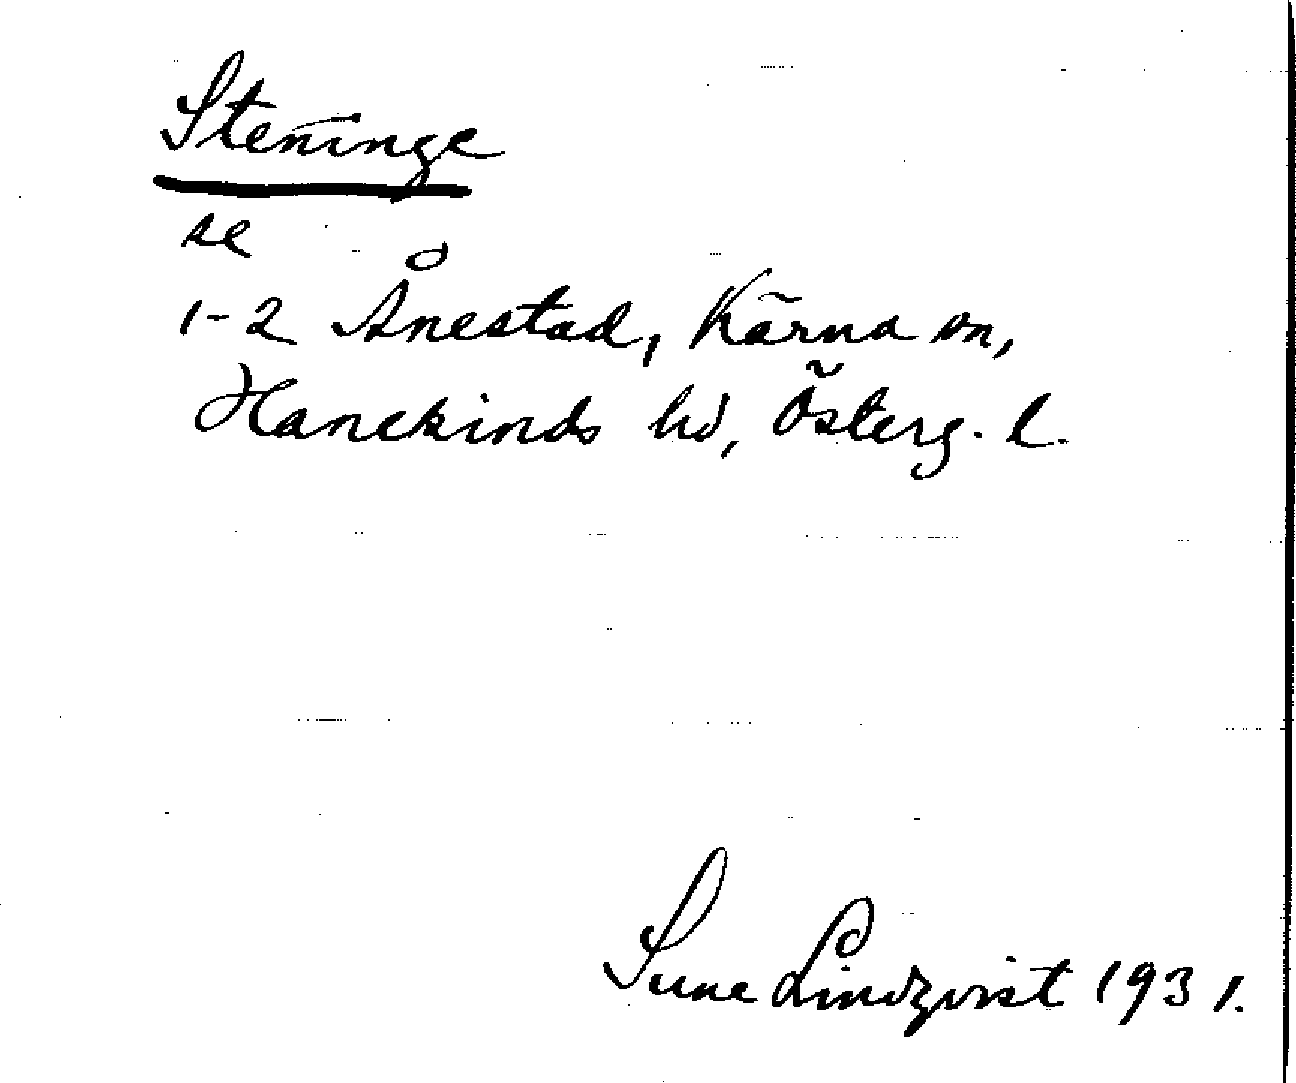 Steninge
se
1-2 Ånestad, Kärna sn,
Hanekinds hd, Österg. l.
Sune Lindqvist 1931.